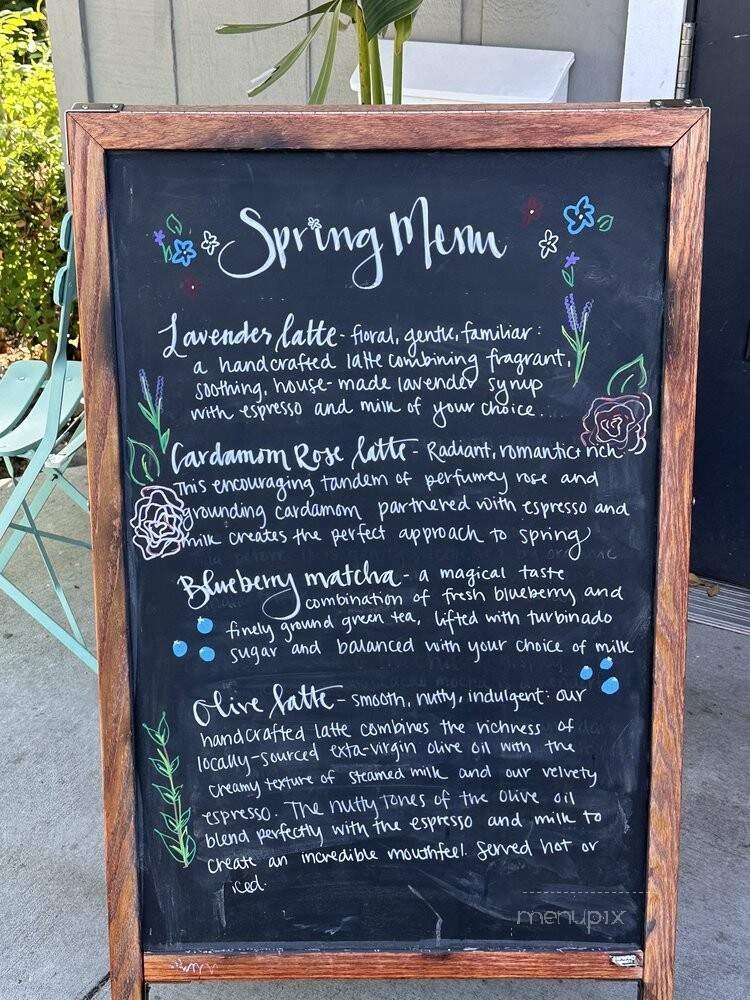 Spring Menu
Lavender latte - floral, gentle, familiar:
a handcrafted latte combining fragrant,
soothing, house-made lavender syrup
with espresso and milk of your choice...
Cardamom Rose latte - Radiant, romantic, rich.
This encouraging tandem of perfumey rose and
grounding cardamom partnered with espresso and
milk creates the perfect approach to spring
Blueberry matcha - a magical taste
combination of fresh blueberry and
finely ground green tea, lifted with turbinado
sugar and balanced with your choice of milk
Olive latte - smooth, nutty, indulgent: our
handcrafted latte combines the richness of
locally-sourced exta-virgin olive oil with the
creamy texture of steamed milk and our velvety
espresso. The nutty tones of the olive oil
blend perfectly with the espresso and milk to
create an incredible mouthfeel. Served hot or
iced.
menupix